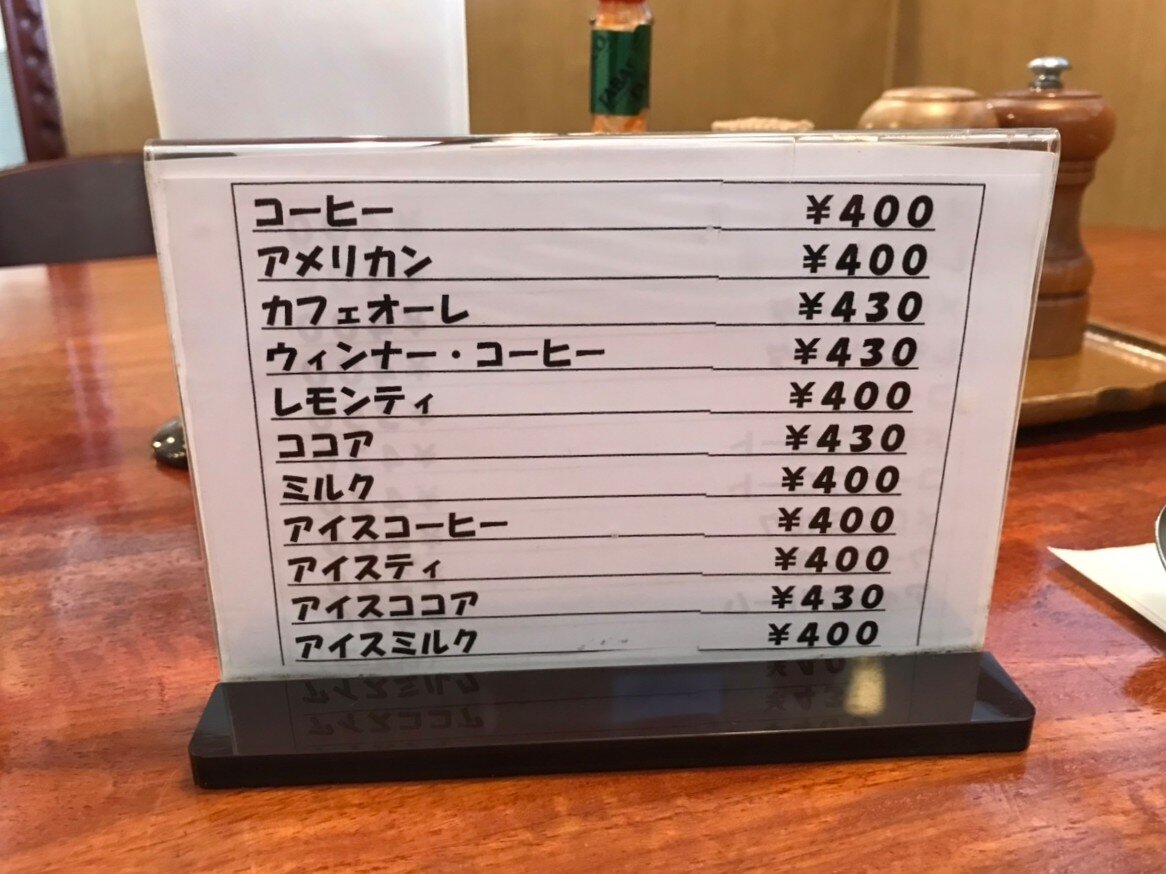 コーヒー ¥400
アメリカン ¥400
カフェオーレ ¥430
ウィンナー・コーヒー ¥430
レモンティ ¥400
ココア ¥430
ミルク ¥400
アイスコーヒー ¥400
アイスティ ¥400
アイスココア ¥430
アイスミルク ¥400